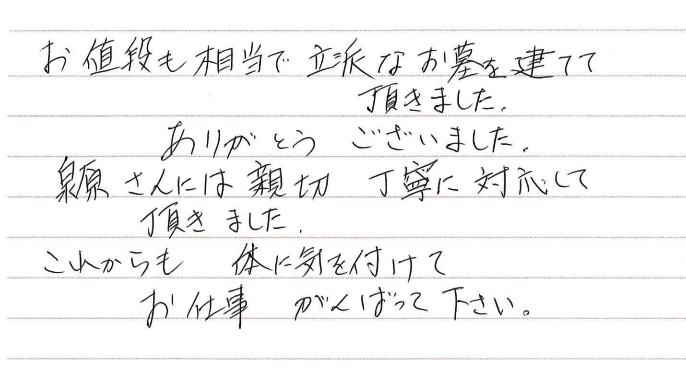 お値段も相当で 立派なお墓を建てて
頂きました.
ありがとう ございました.
泉原さんには親切 丁寧に対応して
頂きました.
これからも 体に気を付けて
お仕事 がんばって下さい。